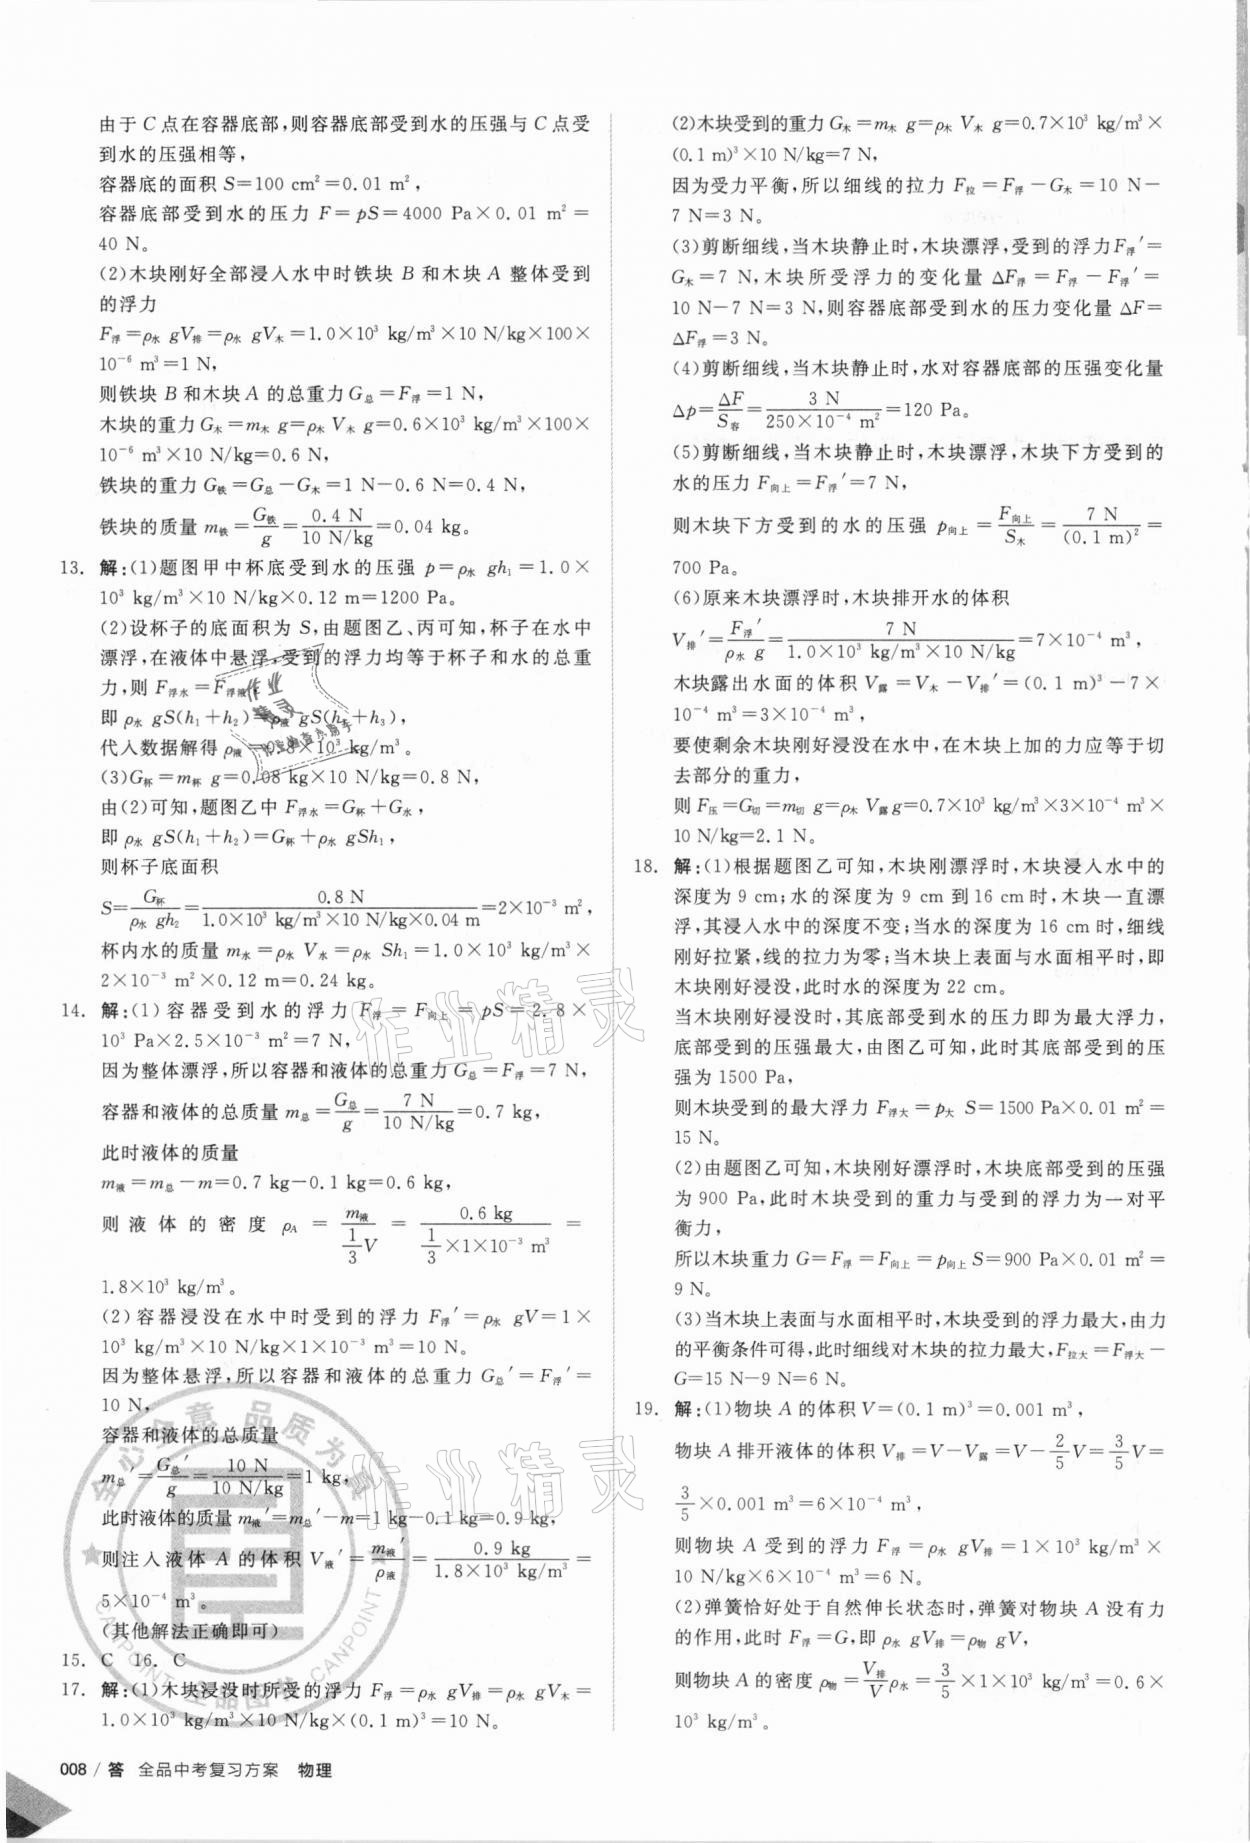 由于 C 点在容器底部,则容器底部受到水的压强与 C 点受
到水的压强相等,
容器底的面积 S=100 cm²=0.01 m²,
容器底部受到水的压力 F=pS=4000 Pa×0.01 m²=
40 N。
(2)木块刚好全部浸入水中时铁块 B 和木块 A 整体受到
的浮力
F浮=ρ水 gV排=ρ水 gV木=1.0×10³ kg/m³×10 N/kg×100×
10⁻⁶ m³=1 N,
则铁块 B 和木块 A 的总重力 G总=F浮=1 N,
木块的重力 G木=m木 g=ρ木 V木 g=0.6×10³ kg/m³×100×
10⁻⁶ m³×10 N/kg=0.6 N,
铁块的重力 G铁=G总-G木=1 N-0.6 N=0.4 N,
铁块的质量 m铁=G铁/g=0.4 N/10 N/kg=0.04 kg。
13. 解:(1)题图甲中杯底受到水的压强 p=ρ水 gh₁=1.0×
10³ kg/m³×10 N/kg×0.12 m=1200 Pa。
(2)设杯子的底面积为 S,由题图乙、丙可知,杯子在水中
漂浮,在液体中悬浮,受到的浮力均等于杯子和水的总重
力,则 F浮水=F浮液,
即 ρ水 gS(h₁+h₂)=ρ液 gS(h₁+h₃),
代入数据解得 ρ液=0.8×10³ kg/m³。
(3)G杯=m杯 g=0.08 kg×10 N/kg=0.8 N,
由(2)可知,题图乙中 F浮水=G杯+G水,
即 ρ水 gS(h₁+h₂)=G杯+ρ水 gSh₁,
则杯子底面积
S=G杯/ρ水 gh₂=0.8 N/1.0×10³ kg/m³×10 N/kg×0.04 m=2×10⁻³ m²,
杯内水的质量 m水=ρ水 V水=ρ水 Sh₁=1.0×10³ kg/m³×
2×10⁻³ m²×0.12 m=0.24 kg。
14. 解:(1)容器受到水的浮力 F浮=F向上=pS=2.8×
10³ Pa×2.5×10⁻³ m²=7 N,
因为整体漂浮,所以容器和液体的总重力 G总=F浮=7 N,
容器和液体的总质量 m总=G总/g=7 N/10 N/kg=0.7 kg,
此时液体的质量
m液=m总-m=0.7 kg-0.1 kg=0.6 kg,
则液体的密度 ρA=m液/(1/3 V)=0.6 kg/(1/3×1×10⁻³ m³)=
1.8×10³ kg/m³。
(2)容器浸没在水中时受到的浮力 F浮′=ρ水 gV=1×
10³ kg/m³×10 N/kg×1×10⁻³ m³=10 N。
因为整体悬浮,所以容器和液体的总重力 G总′=F浮′=
10 N,
容器和液体的总质量
m总′=G总′/g=10 N/10 N/kg=1 kg,
此时液体的质量 m液′=m总′-m=1 kg-0.1 kg=0.9 kg,
则注入液体 A 的体积 V液′=m液′/ρ液=0.9 kg/1.8×10³ kg/m³=
5×10⁻⁴ m³。
(其他解法正确即可)
15. C 16. C
17. 解:(1)木块浸没时所受的浮力 F浮=ρ水 gV排=ρ水 gV木=
1.0×10³ kg/m³×10 N/kg×(0.1 m)³=10 N。
(2)木块受到的重力 G木=m木 g=ρ木 V木 g=0.7×10³ kg/m³×
(0.1 m)³×10 N/kg=7 N,
因为受力平衡,所以细线的拉力 F拉=F浮-G木=10 N-
7 N=3 N。
(3)剪断细线,当木块静止时,木块漂浮,受到的浮力F浮′=
G木=7 N,木块所受浮力的变化量 ΔF浮=F浮-F浮′=
10 N-7 N=3 N,则容器底部受到水的压力变化量 ΔF=
ΔF浮=3 N。
(4)剪断细线,当木块静止时,水对容器底部的压强变化量
Δp=ΔF/S容=3 N/250×10⁻⁴ m²=120 Pa。
(5)剪断细线,当木块静止时,木块漂浮,木块下方受到的
水的压力 F向上=F浮′=7 N,
则木块下方受到的水的压强 p向上=F向上/S木=7 N/(0.1 m)²=
700 Pa。
(6)原来木块漂浮时,木块排开水的体积
V排′=F浮′/ρ水 g=7 N/1.0×10³ kg/m³×10 N/kg=7×10⁻⁴ m³,
木块露出水面的体积 V露=V木-V排′=(0.1 m)³-7×
10⁻⁴ m³=3×10⁻⁴ m³,
要使剩余木块刚好浸没在水中,在木块上加的力应等于切
去部分的重力,
则 F压=G切=m切 g=ρ木 V露g=0.7×10³ kg/m³×3×10⁻⁴ m³×
10 N/kg=2.1 N。
18. 解:(1)根据题图乙可知,木块刚漂浮时,木块浸入水中的
深度为 9 cm;水的深度为 9 cm 到 16 cm 时,木块一直漂
浮,其浸入水中的深度不变;当水的深度为 16 cm 时,细线
刚好拉紧,线的拉力为零;当木块上表面与水面相平时,即
木块刚好浸没,此时水的深度为 22 cm。
当木块刚好浸没时,其底部受到水的压力即为最大浮力,
底部受到的压强最大,由图乙可知,此时其底部受到的压
强为 1500 Pa,
则木块受到的最大浮力 F浮大=p大 S=1500 Pa×0.01 m²=
15 N。
(2)由题图乙可知,木块刚好漂浮时,木块底部受到的压强
为 900 Pa,此时木块受到的重力与受到的浮力为一对平
衡力,
所以木块重力 G=F浮=F向上=p向上 S=900 Pa×0.01 m²=
9 N。
(3)当木块上表面与水面相平时,木块受到的浮力最大,由力
的平衡条件可得,此时细线对木块的拉力最大,F拉大=F浮大-
G=15 N-9 N=6 N。
19. 解:(1)物块 A 的体积 V=(0.1 m)³=0.001 m³,
物块 A 排开液体的体积 V排=V-V露=V-2/5 V=3/5 V=
3/5×0.001 m³=6×10⁻⁴ m³,
则物块 A 受到的浮力 F浮=ρ水 gV排=1×10³ kg/m³×
10 N/kg×6×10⁻⁴ m³=6 N。
(2)弹簧恰好处于自然伸长状态时,弹簧对物块 A 没有力
的作用,此时 F浮=G,即 ρ水 gV排=ρ物 gV,
则物块 A 的密度 ρ物=V排/V ρ水=3/5×1×10³ kg/m³=0.6×
10³ kg/m³。
008 / 答 全品中考复习方案 物理
作业精灵
作业精灵
作业精灵
全心全意 品质为真
CANPOINT 全品图书 CANPOINT